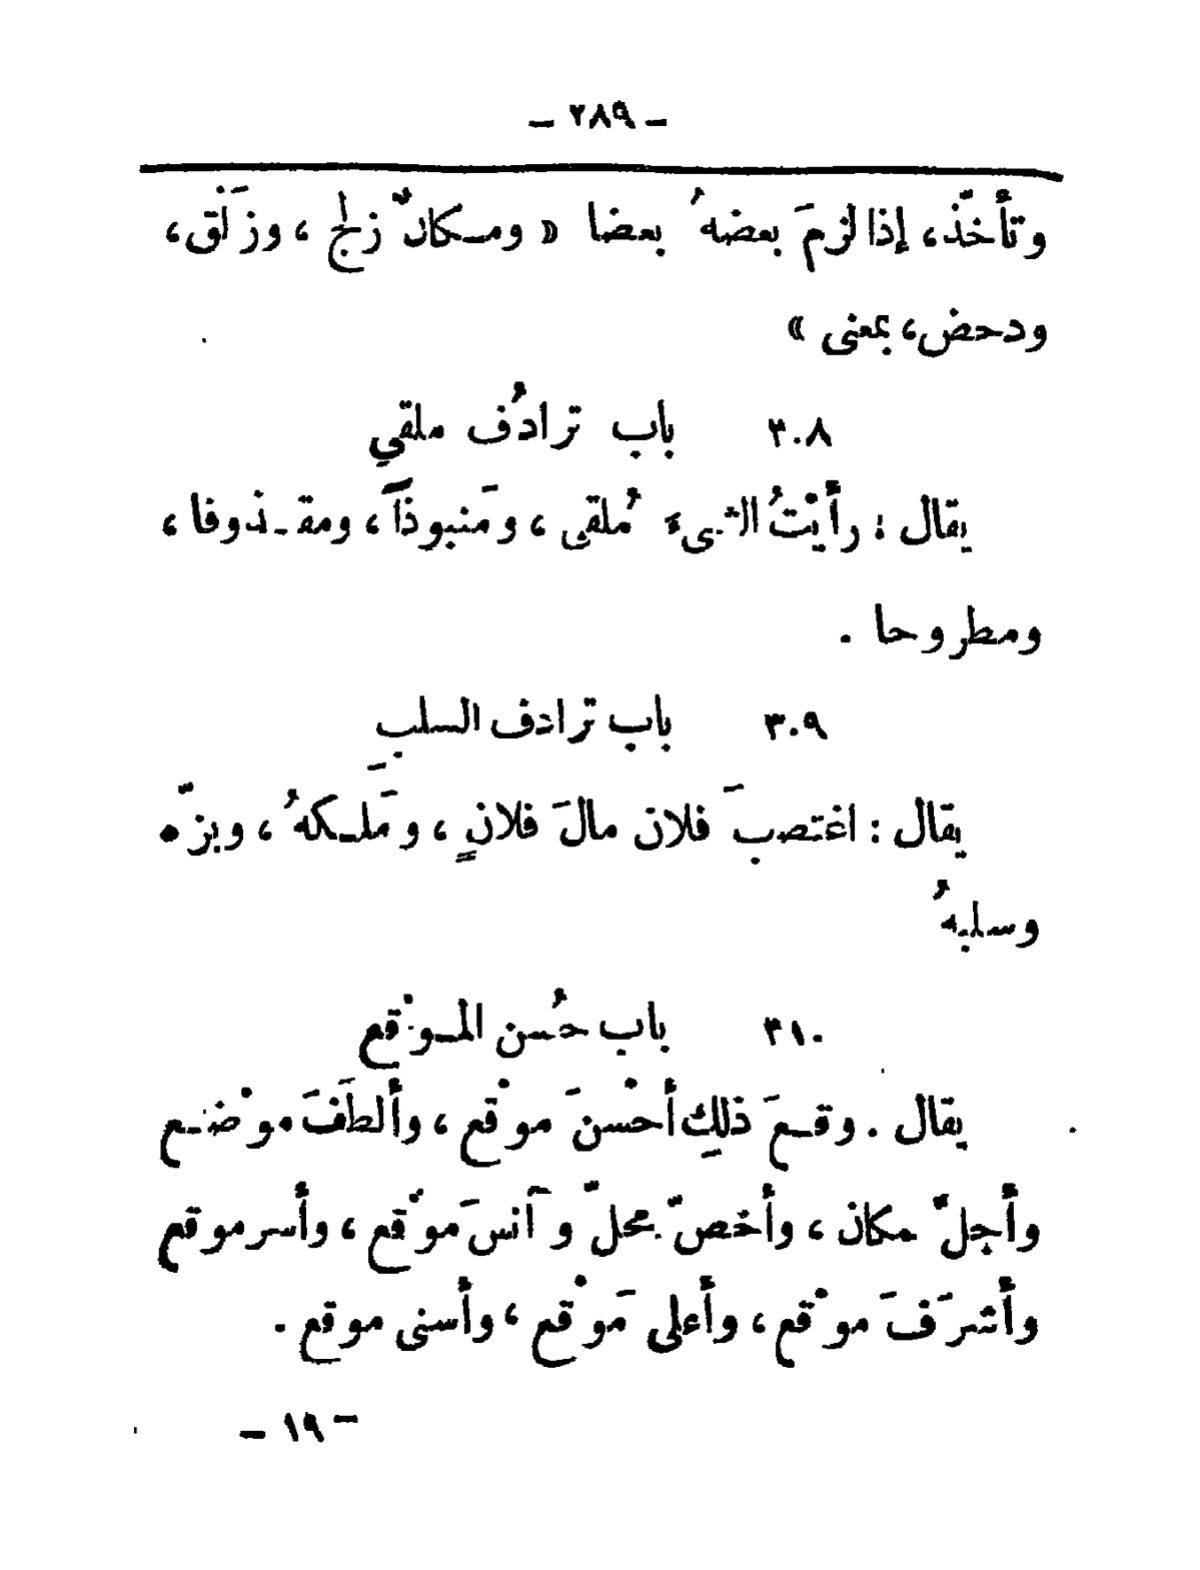 — ٢٨٩ —
وتأخّذ، إذا لزمَ بعضهُ بعضا « ومكانٌ زلج ، وزَلْق،
ودحض، بمعنى »
٣٠٨ باب ترادُف ملقي
يقال : رأَيْتُ الشيءَ مُلقى ، ومَنبوذاً ، ومقذوفا ،
ومطروحا .
٣٠٩ باب ترادف السلبِ
يقال : اغتصبَ فلان مالَ فلانٍ ، ومَلكهُ ، وبزّه
وسلبهُ
٣١٠ باب حُسن الموْقع
يقال . وقعَ ذلكِ أحْسنَ موْقع ، وألطَفَ موْضع
وأجلّ مكان ، وأخصّ محلّ وآنسَ موْقع ، وأسر موقع
وأشرَفَ موْقع ، وأعلى مَوْقع ، وأسنى موقع .
— ١٩ —